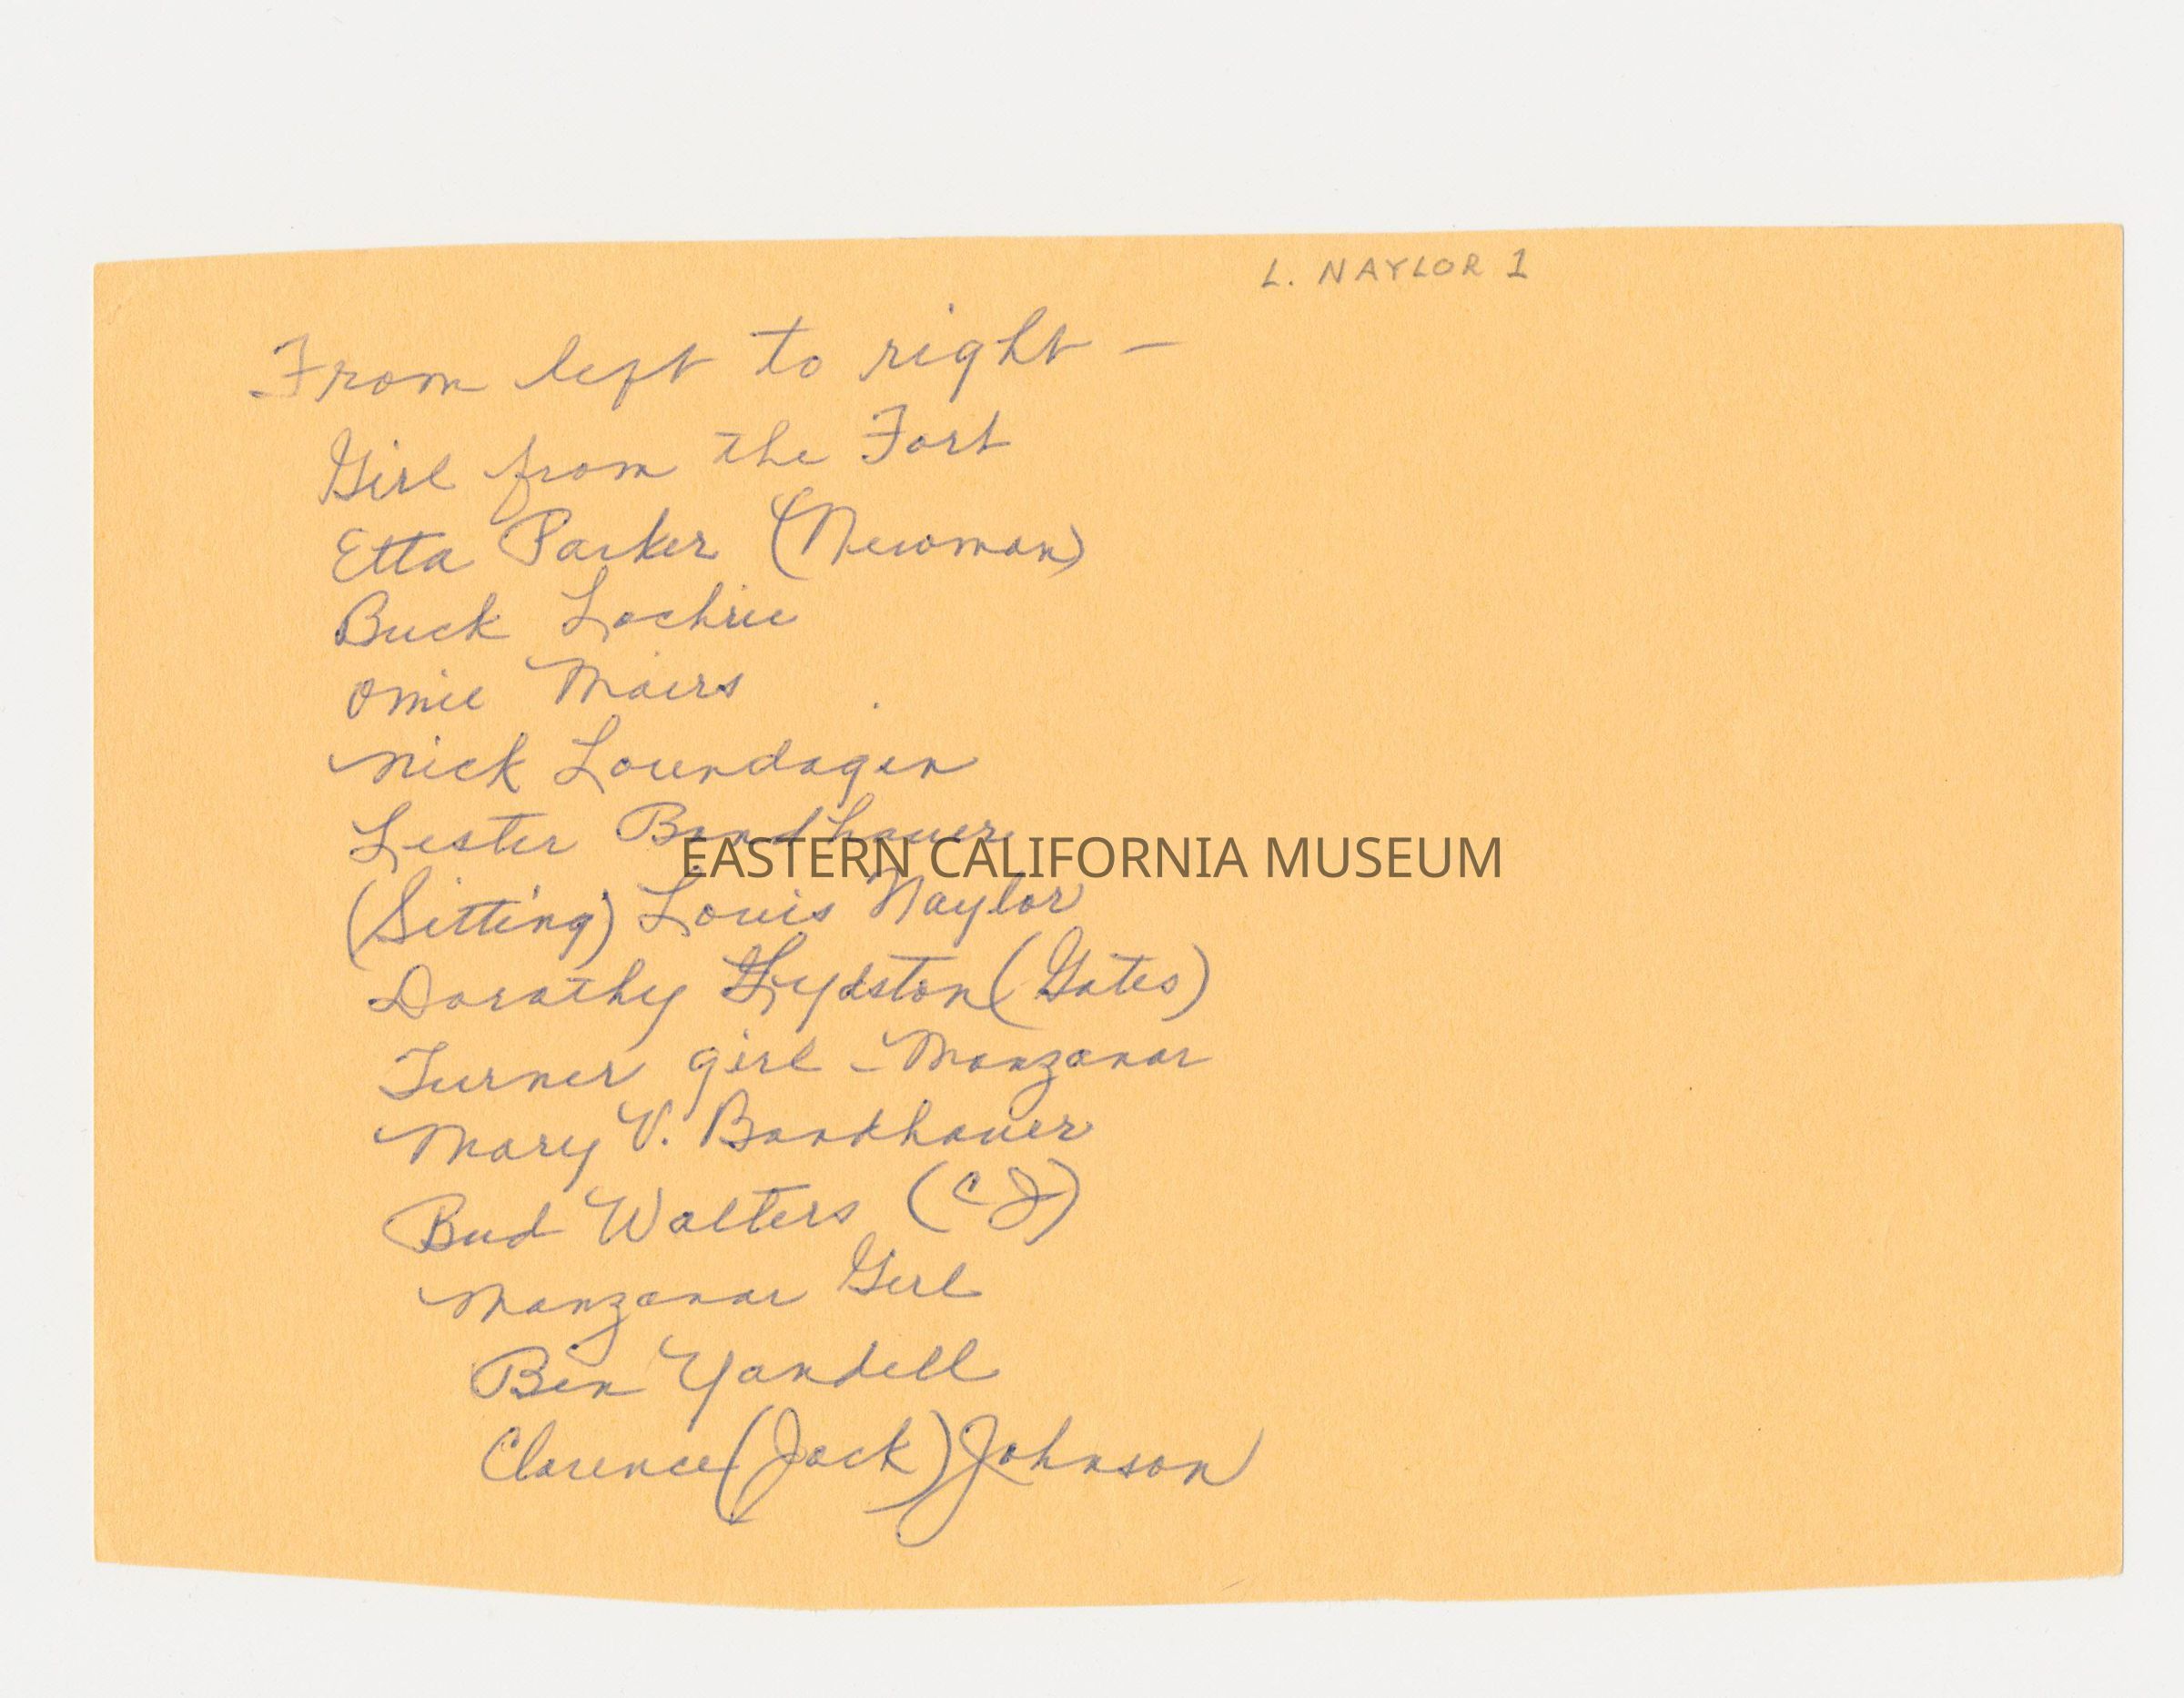 L. NAYLOR 1
From left to right —
Girl from the Fort
Etta Parker (Newman)
Buck Lochrie
Omie Mairs
Nick Loundagin
Lester Bandhauer
EASTERN CALIFORNIA MUSEUM
(Sitting) Louis Naylor
Dorothy Lydston (Gates)
Turner girl - Manzanar
Mary V. Bandhauer
Bud Walters (CJ)
Manzanar Girl
Ben Yandell
Clarence (Jack) Johnson